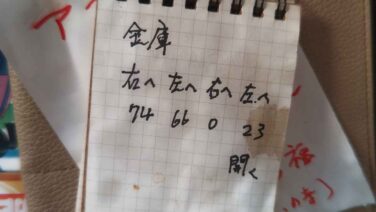 金庫
右へ 左へ 右へ 左へ
74 66 0 23
開く